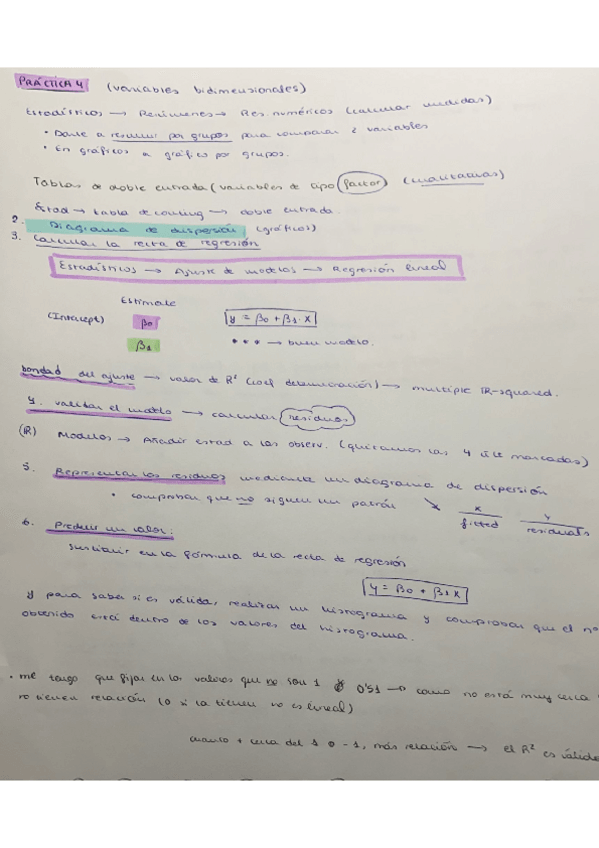 PRÁCTICA 4 (variables bidimensionales)
Estadísticos → Resúmenes → Res. numéricos (calcular medidas)
• Darle a resumir por grupos para comparar 2 variables
• En gráficos a gráfico por grupos.
Tablas de doble entrada (variables de tipo factor) (cualitativas)
Estad → tabla de conting → doble entrada.
2. Diagrama de dispersión (gráficos)
3. Calcular la recta de regresión
Estadísticos → Ajuste de modelos → Regresión lineal
Estimate
(Intercept) β0 y = β0 + β1 · X
β1 *** → buen modelo.
bondad del ajuste → valor de R² (coef determinación) → multiple R-squared.
4. validar el modelo → calcular residuos
(R) Modelos → Añadir estad a las observ. (quitamos las 4 últ marcadas)
5. Representar los residuos mediante un diagrama de dispersión
• comprobar que no siguen un patrón x fitted y residuals
6. Predecir un valor:
sustituir en la fórmula de la recta de regresión
y = β0 + β1 X
y para saber si es válida, realizar un histograma y comprobar que el no
obtenido está dentro de los valores del histograma.
• me tengo que fijar en los valores que no son 1 0'51 → como no está muy cerca
no tienen relación (o si la tienen no es lineal)
cuanto + cerca del 1 o -1, más relación → el R² es válido